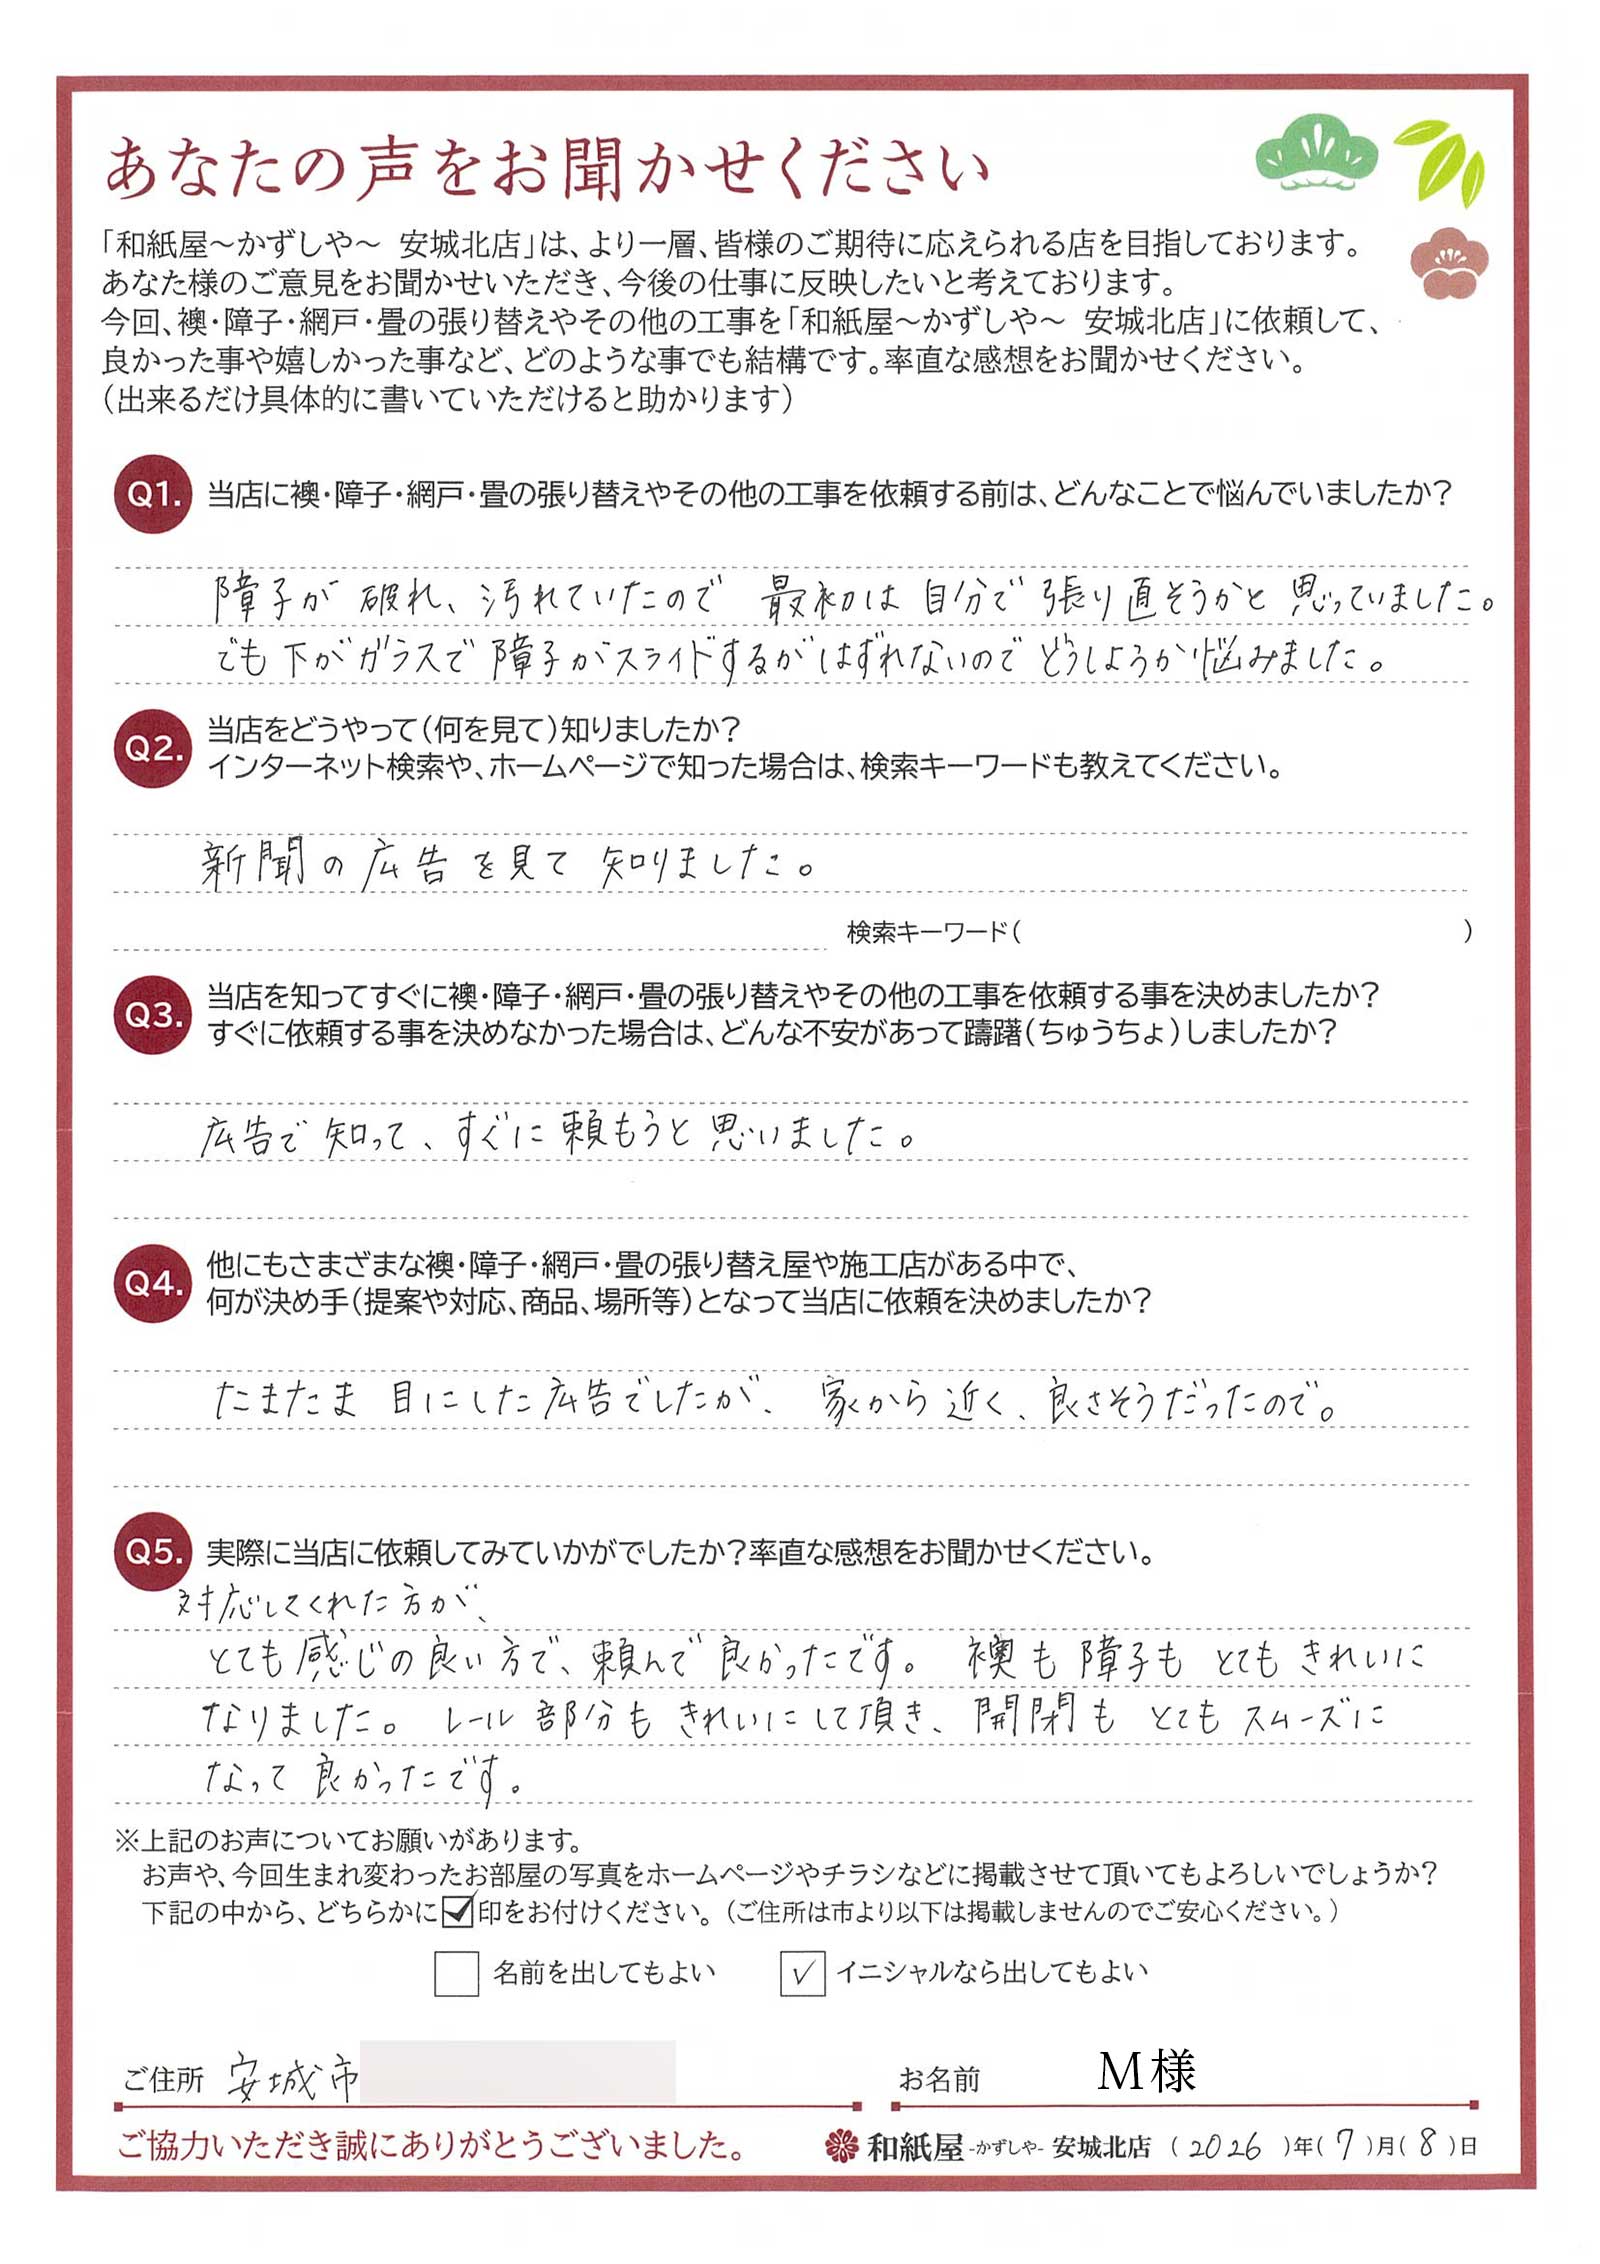 あなたの声をお聞かせください
「和紙屋～かずしや～ 安城北店」は、より一層、皆様のご期待に応えられる店を目指しております。
あなた様のご意見をお聞かせいただき、今後の仕事に反映したいと考えております。
今回、襖・障子・網戸・畳の張り替えやその他の工事を「和紙屋～かずしや～ 安城北店」に依頼して、
良かった事や嬉しかった事など、どのような事でも結構です。率直な感想をお聞かせください。
（出来るだけ具体的に書いていただけると助かります）
Q1. 当店に襖・障子・網戸・畳の張り替えやその他の工事を依頼する前は、どんなことで悩んでいましたか？
障子が破れ、汚れていたので 最初は自分で張り直そうかと思っていました。
でも下がガラスで障子がスライドするがはずれないのでどうしようか悩みました。
Q2. 当店をどうやって（何を見て）知りましたか？
インターネット検索や、ホームページで知った場合は、検索キーワードも教えてください。
新聞の広告を見て知りました。
検索キーワード（ ）
Q3. 当店を知ってすぐに襖・障子・網戸・畳の張り替えやその他の工事を依頼する事を決めましたか？
すぐに依頼する事を決めなかった場合は、どんな不安があって躊躇（ちゅうちょ）しましたか？
広告で知って、すぐに頼もうと思いました。
Q4. 他にもさまざまな襖・障子・網戸・畳の張り替え屋や施工店がある中で、
何が決め手（提案や対応、商品、場所等）となって当店に依頼を決めましたか？
たまたま目にした広告でしたが、家から近く、良さそうだったので。
Q5. 実際に当店に依頼してみていかがでしたか？率直な感想をお聞かせください。
対応してくれた方が、
とても感じの良い方で、頼んで良かったです。襖も障子もとてもきれいに
なりました。レール部分もきれいにして頂き、開閉もとてもスムーズに
なって良かったです。
※上記のお声についてお願いがあります。
お声や、今回生まれ変わったお部屋の写真をホームページやチラシなどに掲載させて頂いてもよろしいでしょうか？
下記の中から、どちらかに☑印をお付けください。（ご住所は市より以下は掲載しませんのでご安心ください。）
□ 名前を出してもよい ☑ イニシャルなら出してもよい
ご住所 安城市 お名前 M様
ご協力いただき誠にありがとうございました。 和紙屋 -かずしや- 安城北店 （2026）年（7）月（8）日